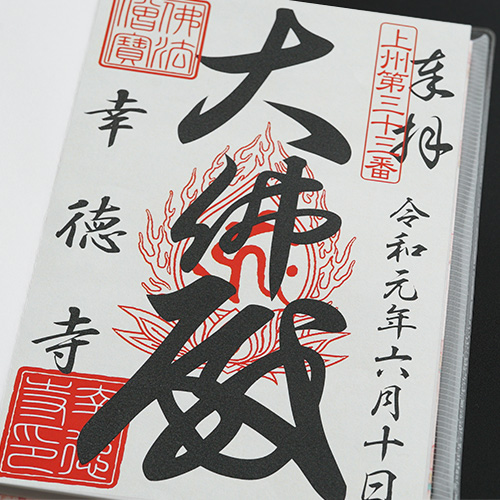 奉拝
上州第三十三番
令和元年六月十日
大佛殿
佛法僧寳
幸徳寺
幸徳寺印